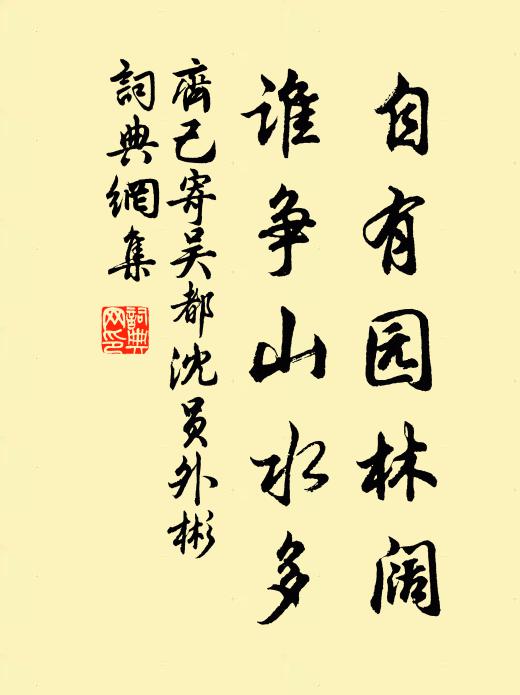 自有园林阔
谁争山水多
齊己寄吴都沈员外彬
詞典網集
詞典网印